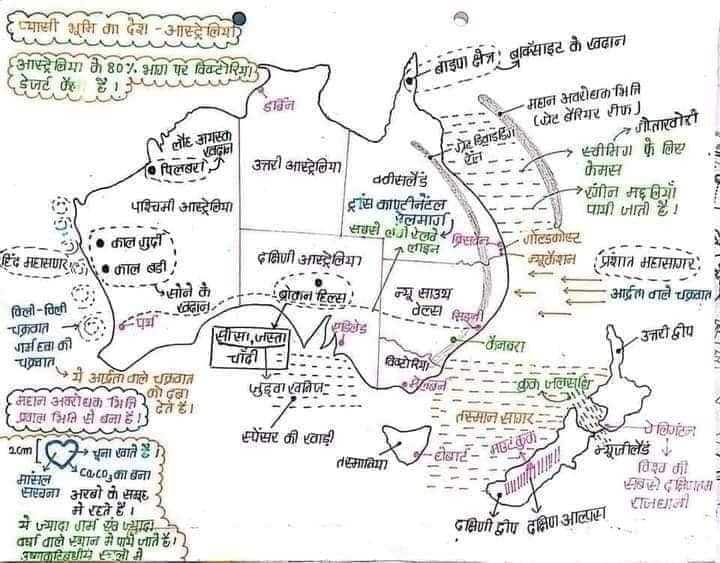 प्यासी भूमि का देश - आस्ट्रेलिया
आस्ट्रेलिया के 80% भाग पर विक्टोरिया
डेजर्ट फैला है।
डार्विन
बाइपा क्षेत्र: बाक्साइट के खदान
महान अवरोधक भित्ति
(ग्रेट बैरियर रीफ)
गोताखोरी
स्वीमिंग के लिए
फेमस
रंगीन मछलियाँ
पायी जाती है।
ग्रेट डिवाइडिंग
रेंज
लौह अयस्क
खदान
पिलबरा
उत्तरी आस्ट्रेलिया
क्वींसलैंड
पश्चिमी आस्ट्रेलिया
ट्रांस काण्टीनेंटल
रेलमार्ग
सबसे लंबी रेलवे
लाइन
ब्रिसबेन
गोल्डकोस्ट
न्यूकैसल
काल गुर्दी
काल बर्डी
हिंद महासागर
दक्षिणी आस्ट्रेलिया
प्रशांत महासागर
आर्द्रता वाले चक्रवात
सोने के
खदान
ब्रोकन हिल्स
न्यू साउथ
वेल्स
सिडनी
विली-विली
चक्रवात
गर्म हवा की
चक्रवात
पर्थ
सीसा, जस्ता
चाँदी
एडिलेड
कैनबरा
उत्तरी द्वीप
विक्टोरिया
मेलबर्न
ये आर्द्रता वाले चक्रवात
को दबा
देते हैं।
जुड़वा खनिज
कुक जलसंधि
महान अवरोधक भित्ति
प्रवाल भित्ति से बना है।
तस्मान सागर
स्पेंसर की खाड़ी
तस्मानिया
होबार्ट
माउंट कुक
वेलिंगटन
न्यूजीलैंड
विश्व की
सबसे दक्षिणतम
राजधानी
2cm
चूना खाते हैं।
CaCO3 का बना
मांसल
संरचना
अरबो के समूह
में रहते हैं।
ये ज्यादा गर्म एवं ज्यादा
वर्षा वाले स्थान में पाये जाते हैं।
उष्णकटिबंधीय
दक्षिणी द्वीप
दक्षिण आल्पस